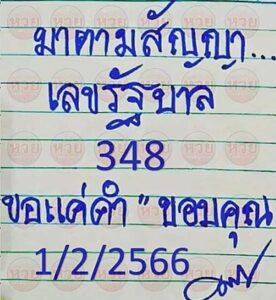 มาตามสัญญา...
เลขรัฐบาล
348
ขอแค่คำ "ขอบคุณ
1/2/2566